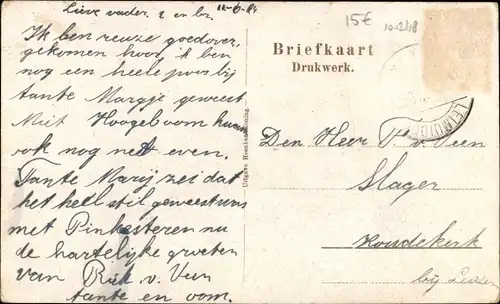 Lieve vader. z en br.
11-6-
15€
10-12/18
Ik ben reuze goed over
gekomen hoor, ik ben
nog een heele poos bij
tante Margje geweest
Miet Hoogeboom kwam
ook nog net even.
Tante Marij zei dat
het heel stil geweest was
met Pinksteren nu
de hartelijke groeten
van Riek v. Veen
tante en oom.
Briefkaart
Drukwerk.
Den Heer T. v. Veen
Slager
Koudekerk
bij Leiden